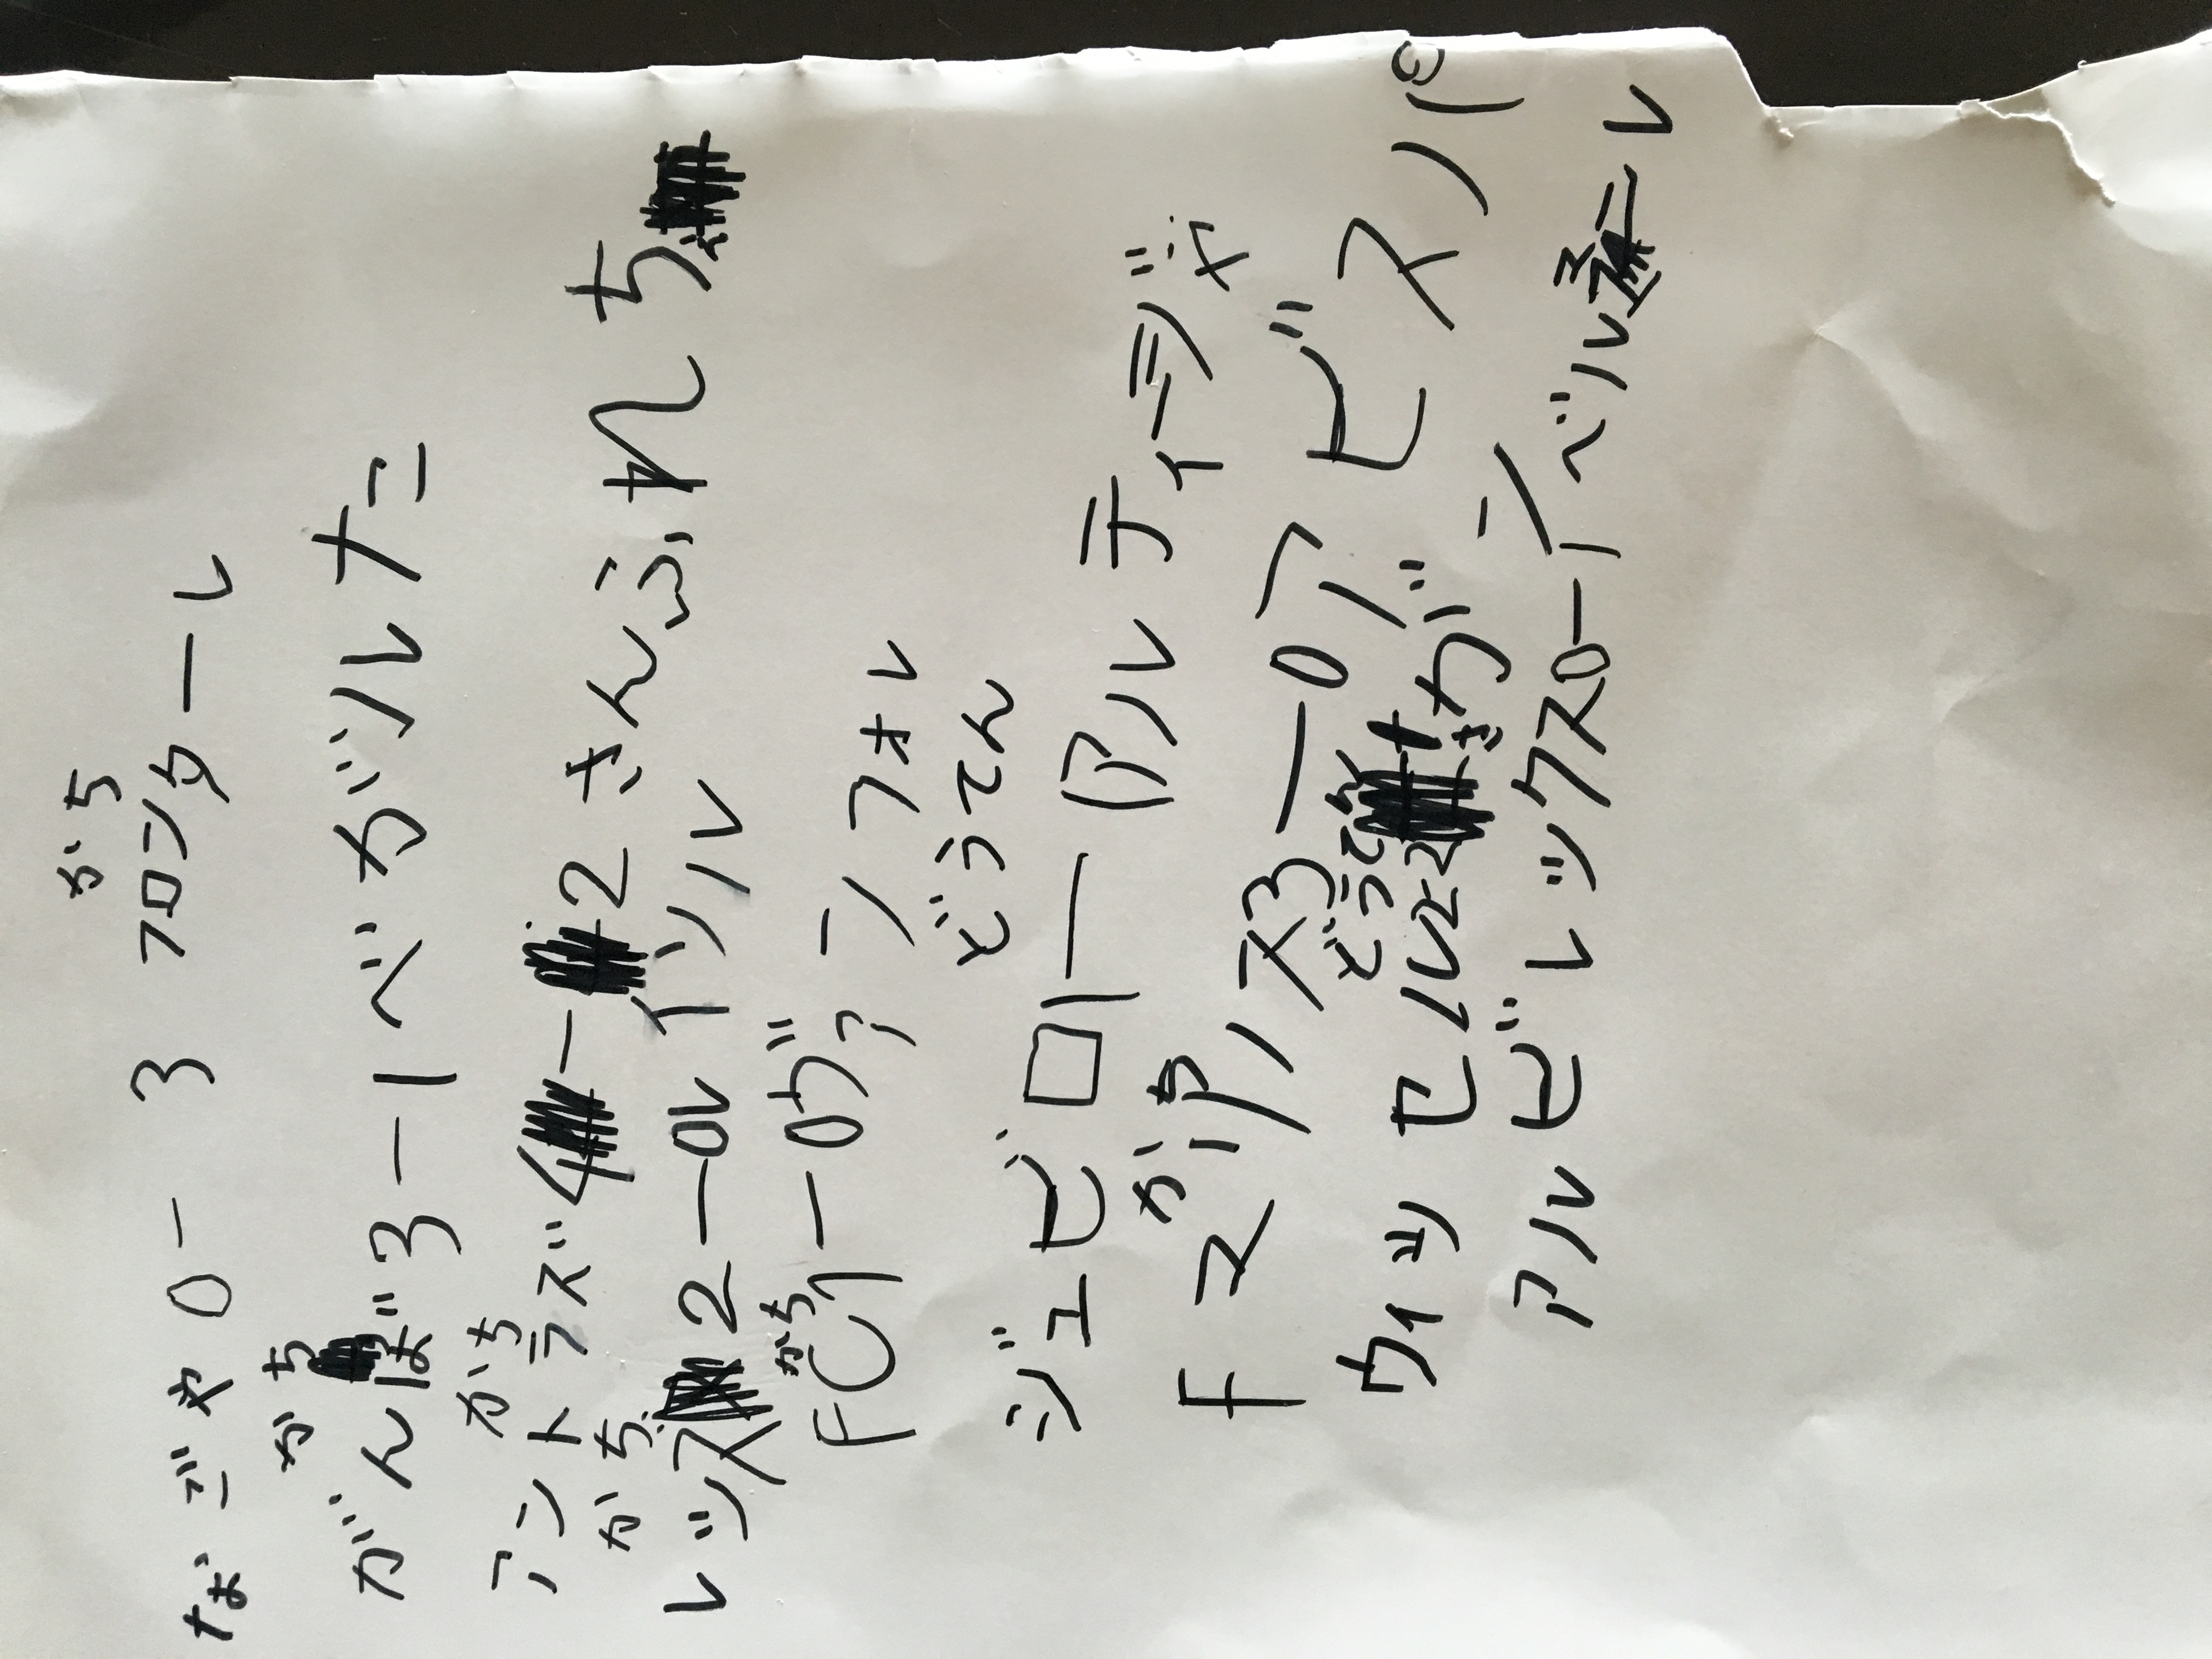 がち
なごや0-3フロンターレ
がち
がんば3-1べガルナニ
がち
アントラズ4-2さんふれち
がち
レッズ2-0レイソル
がち
FC1-0ヴァンフォレ
どうてん
ジュビロ1-1アルティージャ
がち
Fスアノス3-0アビスパ
どうてん
ウィッセル2-2サガン
アルビレックス0-1ベルマーレ